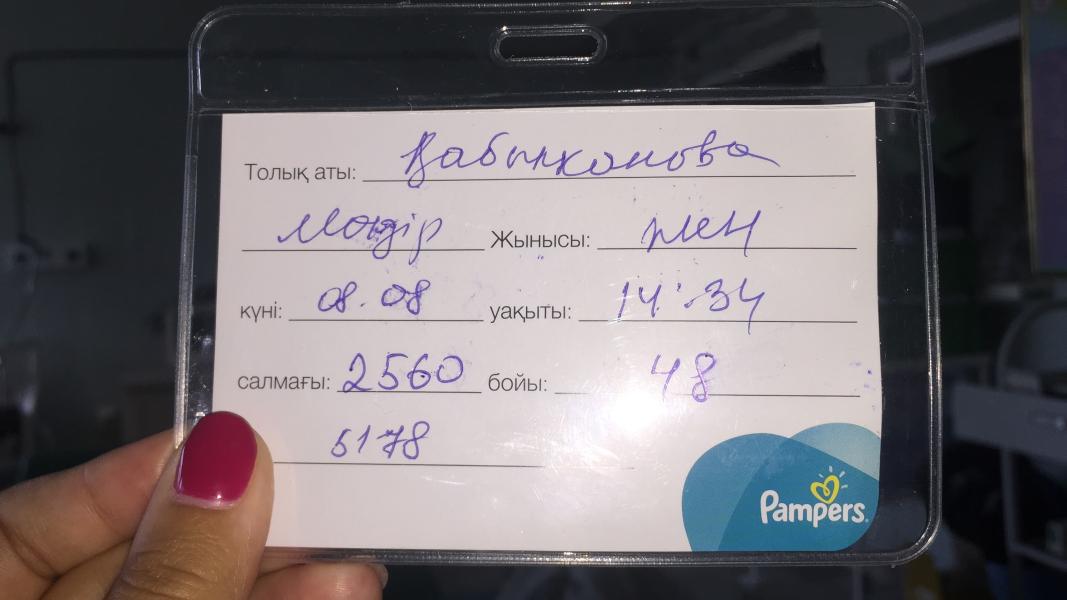 Толық аты: Қабылханова
Мөлдір Жынысы: жен
күні: 08.08 уақыты: 14:34
салмағы: 2560 бойы: 48
5178
Pampers